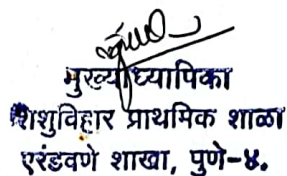 मुख्याध्यापिका
शिशुविहार प्राथमिक शाळा
एरंडवणे शाखा, पुणे-४.